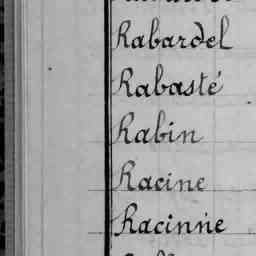 Rabardel
Rabasté
Rabin
Racine
Racinne